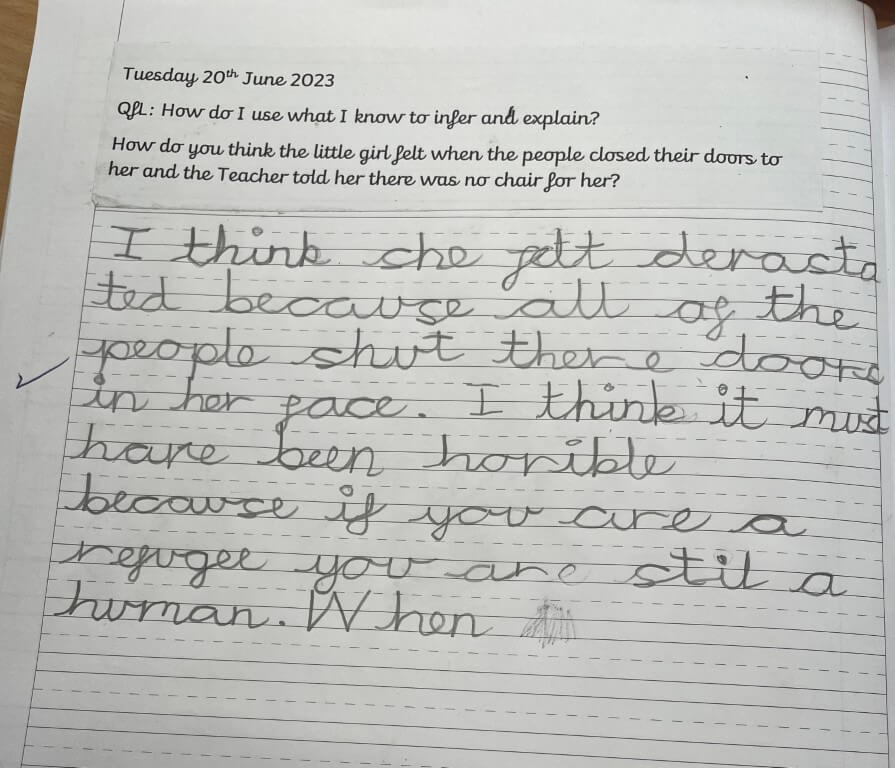 Tuesday 20th June 2023
QfL: How do I use what I know to infer and explain?
How do you think the little girl felt when the people closed their doors to
her and the Teacher told her there was no chair for her?
I think she felt devasta
ted because all of the
people shut there doors
in her face. I think it must
have been horible
because if you are a
refugee you are stil a
human. When